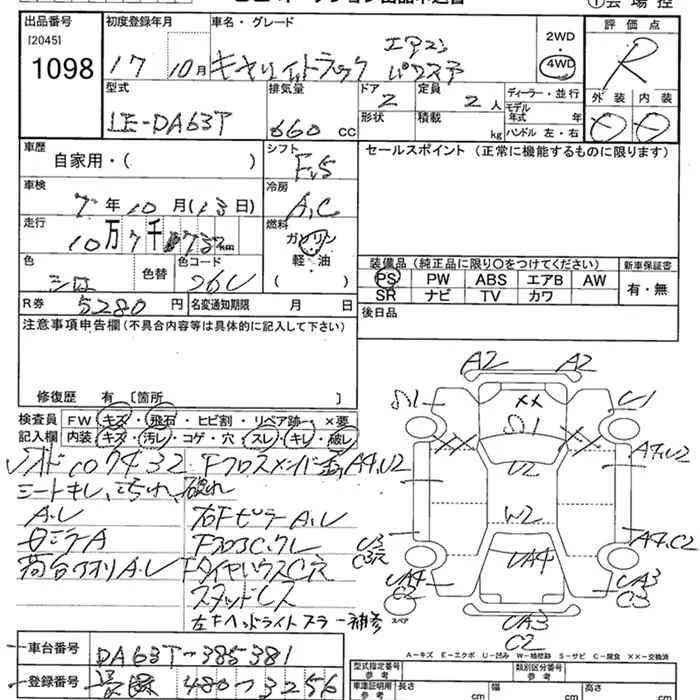 出品番号 初度登録年月 車名・グレード 評価点
[2045]
1098 17 10月 キャリィトラック エアコン パワステ 2WD 4WD R
型式 排気量 ドア 定員 ディーラー・並行 外装 内装
LE-DA63T 660 CC 2 2 人 モデル年式 年
形状 積載 kg ハンドル 左・右
車歴 シフト セールスポイント（正常に機能するものに限ります）
自家用・( ) F.5
車検 冷房
7年10月(13日) A,C
走行 燃料
10万7千 km ガソリン
色 色替 色コード 軽・油
シロ 26U ( )
装備品（純正品に限り○をつけてください） 新車保証書
PS PW ABS エアB AW 有・無
SR ナビ TV カワ
R券 5280 円 名変通知期限 月 日
後日品
注意事項申告欄(不具合内容等は具体的に記入して下さい)
修復歴 有 〔箇所 〕
検査員 FW キズ・飛石・ヒビ割・リペア跡・×要
記入欄 内装・キズ・汚レ・コゲ・穴・スレ・キレ・破レ
シートキレ、汚れ、破れ
A.U
右FピラーA.U
荷台アオリA.U
FタイヤハウスC穴
スタッドレス
左右ヘッドライトスラー補修
A2 A2
XX
U1
U2
A4,U2
W2
A4,C2
U3
C3穴
UA4
UA4
C2
UA3
C3
スペア
UA3
C2
A-キズ E-エクボ U-凹み W-補修跡 S-サビ C-腐食 XX-交換済
車台番号 DA63T-385381
登録番号 480 3256
型式指定番号 参考 類別区分番号 参考
車庫証明用 参考 長さ cm 幅 cm 高さ cm